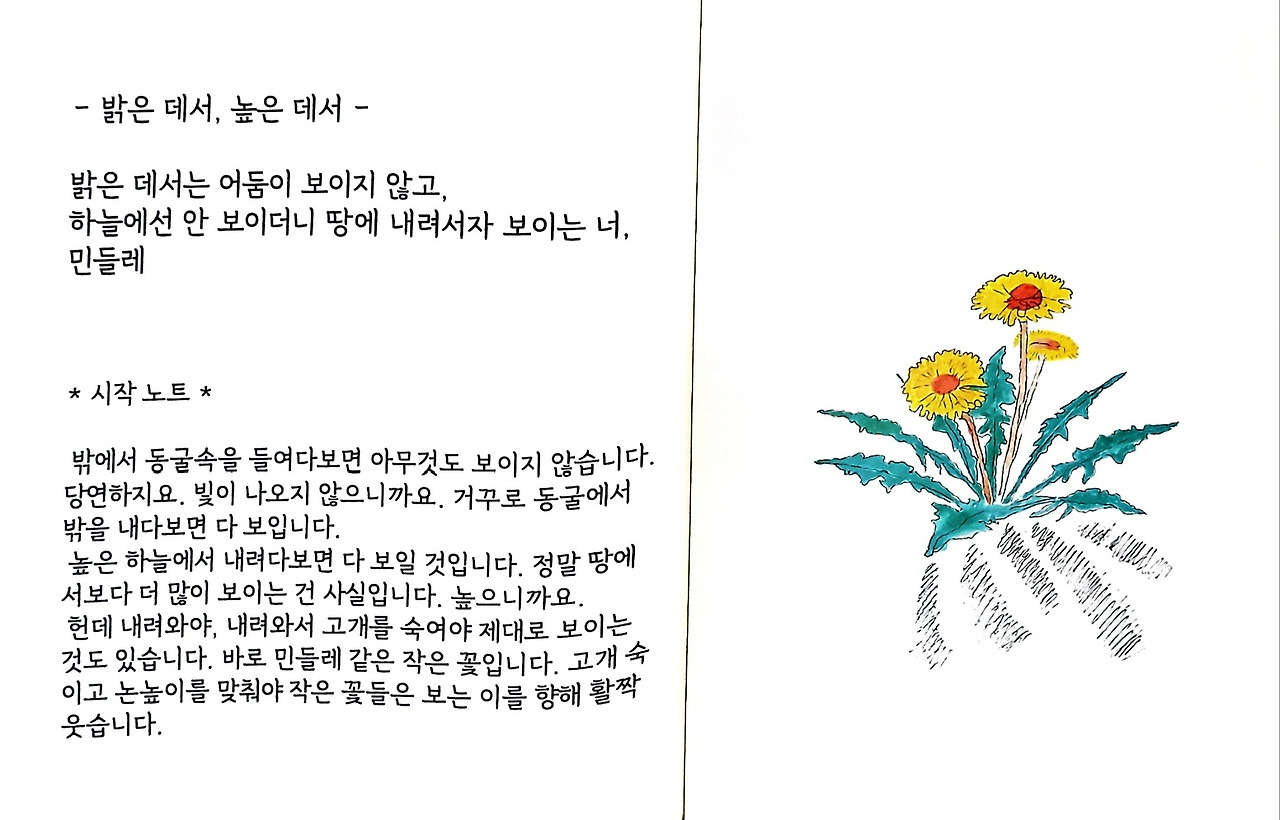 - 밝은 데서, 높은 데서 -
밝은 데서는 어둠이 보이지 않고,
하늘에선 안 보이더니 땅에 내려서자 보이는 너,
민들레
* 시작 노트 *
밖에서 동굴속을 들여다보면 아무것도 보이지 않습니다.
당연하지요. 빛이 나오지 않으니까요. 거꾸로 동굴에서
밖을 내다보면 다 보입니다.
높은 하늘에서 내려다보면 다 보일 것입니다. 정말 땅에
서보다 더 많이 보이는 건 사실입니다. 높으니까요.
헌데 내려와야, 내려와서 고개를 숙여야 제대로 보이는
것도 있습니다. 바로 민들레 같은 작은 꽃입니다. 고개 숙
이고 논높이를 맞춰야 작은 꽃들은 보는 이를 향해 활짝
웃습니다.